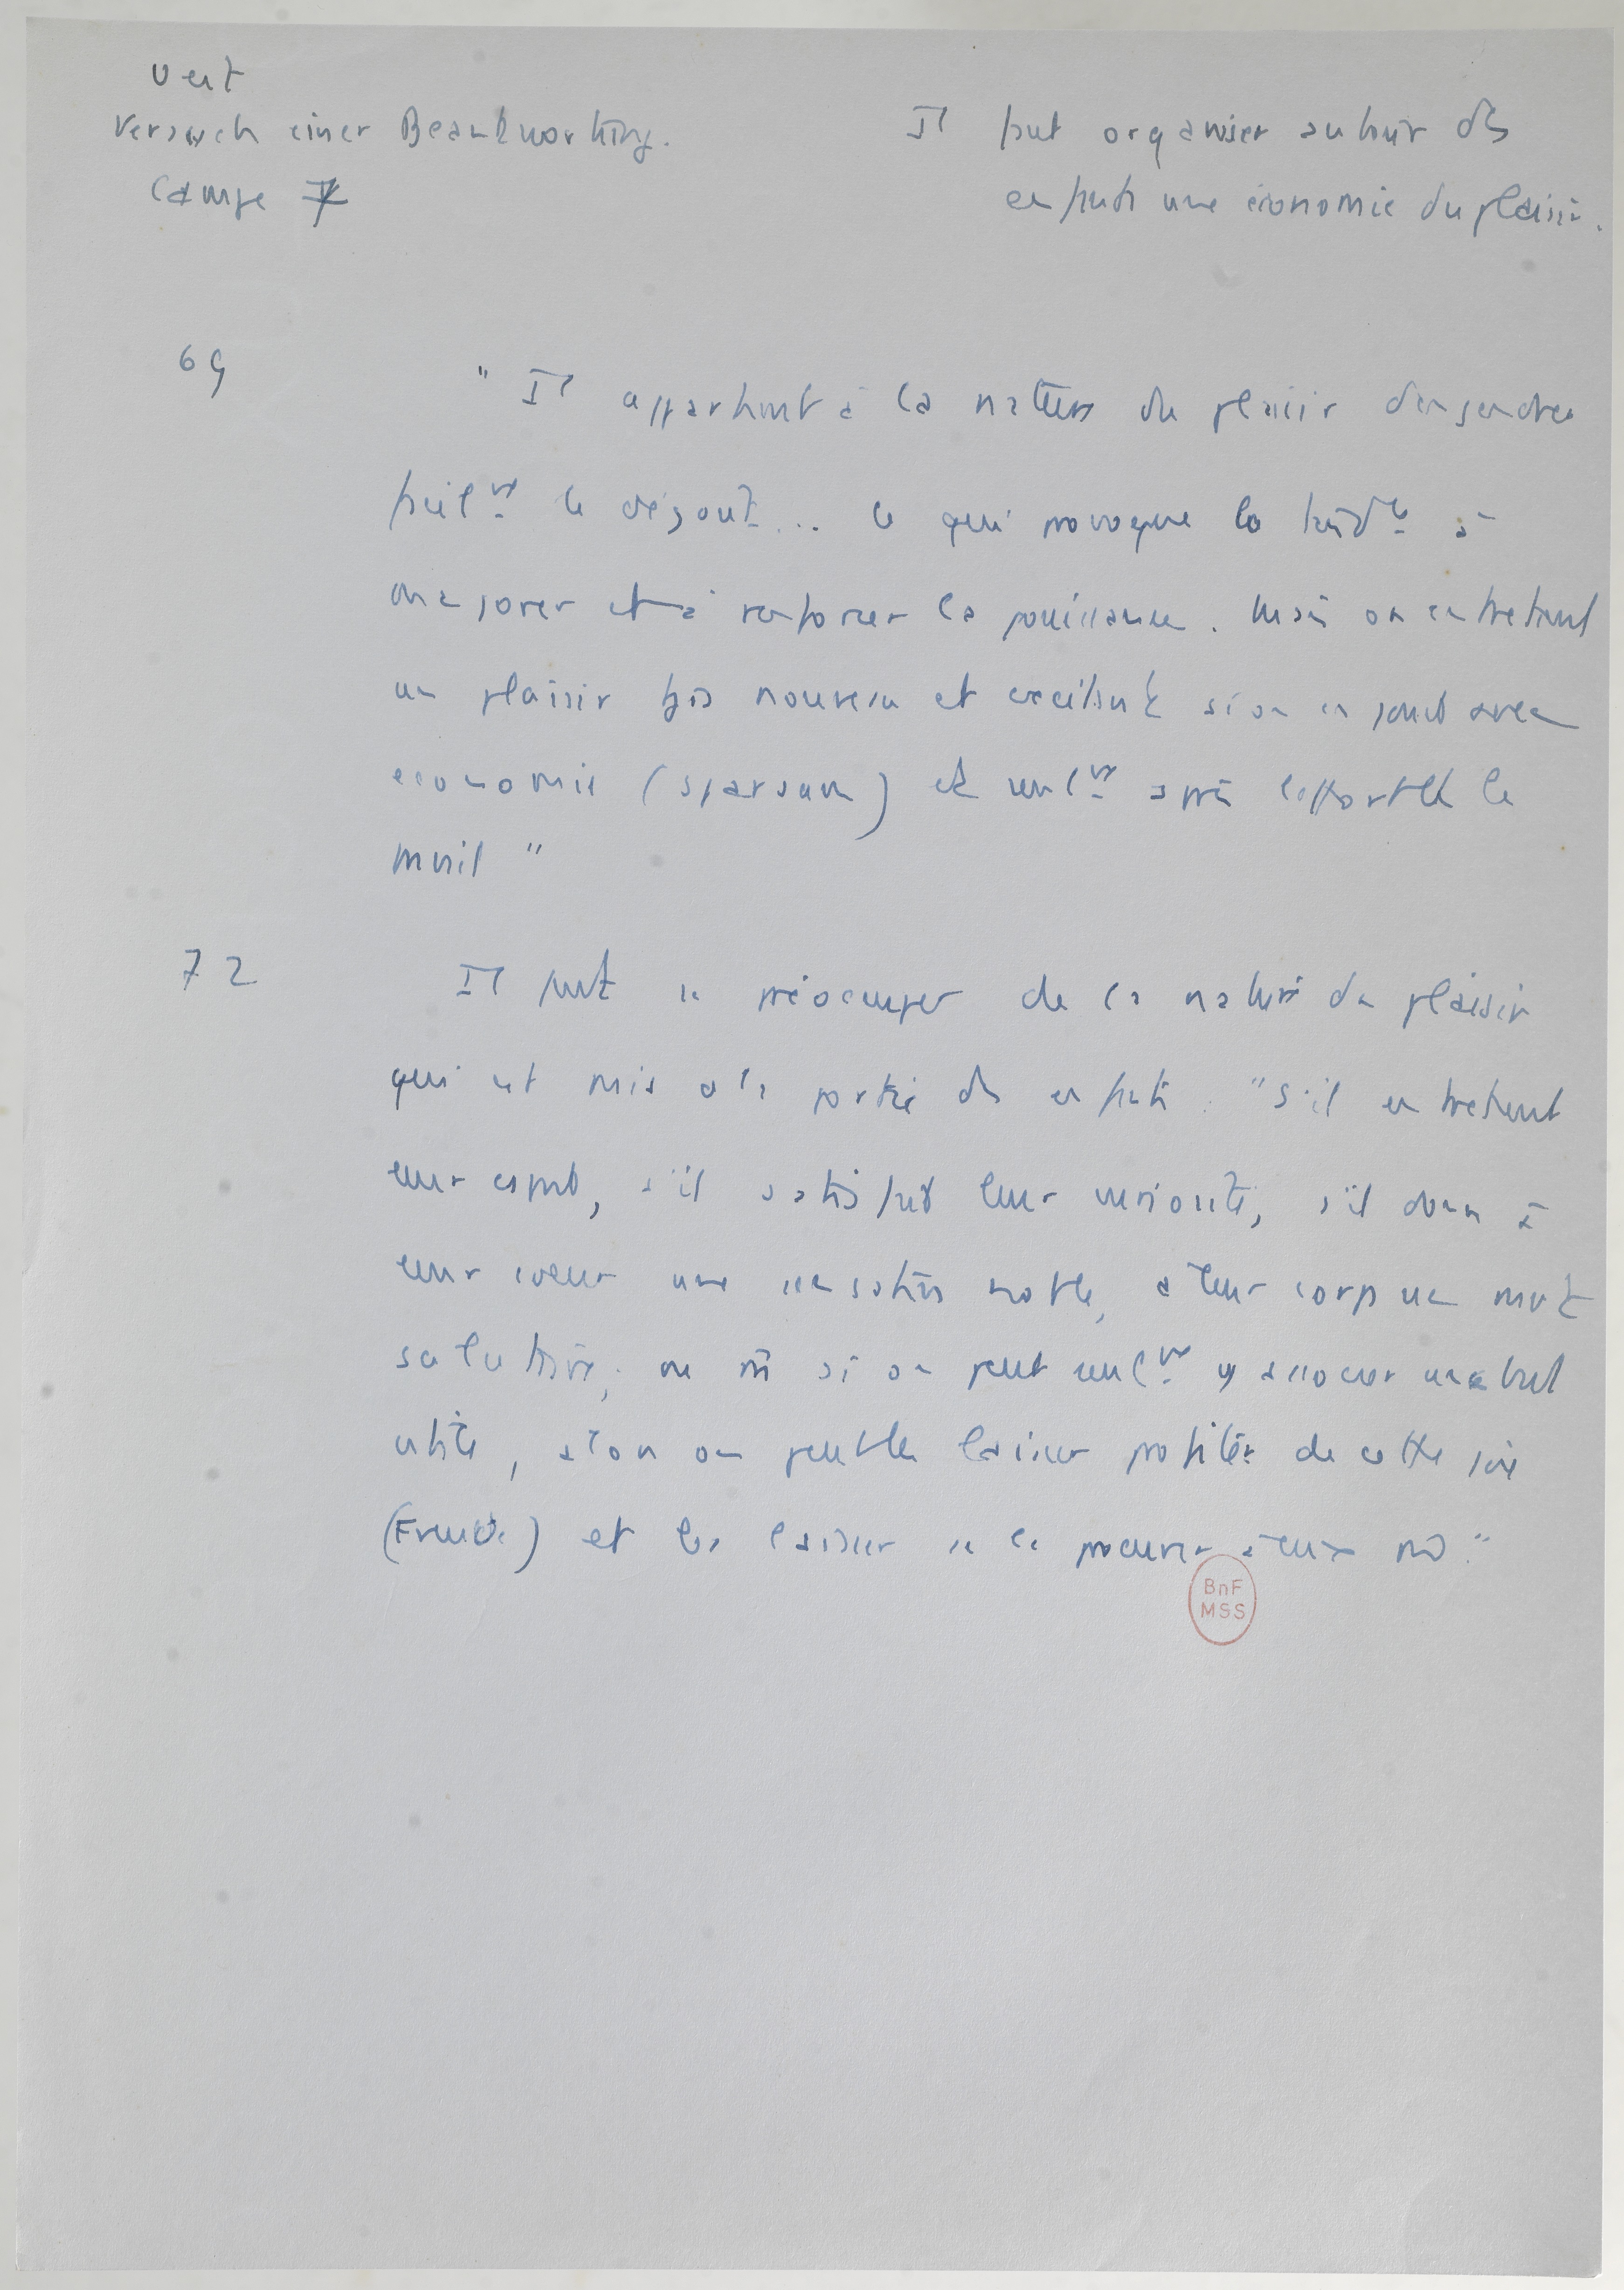 Vert
Versuch einer Beantwortung.
Campe 7
Il faut organiser autour des
enfants une économie du plaisir.
69
" Il appartient à la nature du plaisir d'engendrer
facilmt le dégoût... ce qui provoque la tendce à
majorer et à renforcer la jouissance. Mais on entretient
un plaisir tjs nouveau et excitant si on en jouit avec
économie (sparsam) et seulmt après l'effort et le
travail "
72
Il faut se préoccuper de la nature du plaisir
qui est mis à la portée des enfants : "s'il entretient
leur esprit, s'il satisfait leur curiosité, s'il donne à
leur coeur une sensation noble, à leur corps un mvt
salutaire, ou m si on peut seulmt y associer un but
utile, alors on peut les laisser profiter de cette joie
(Freude) et les laisser se la procurer à eux m."
BnF
MSS